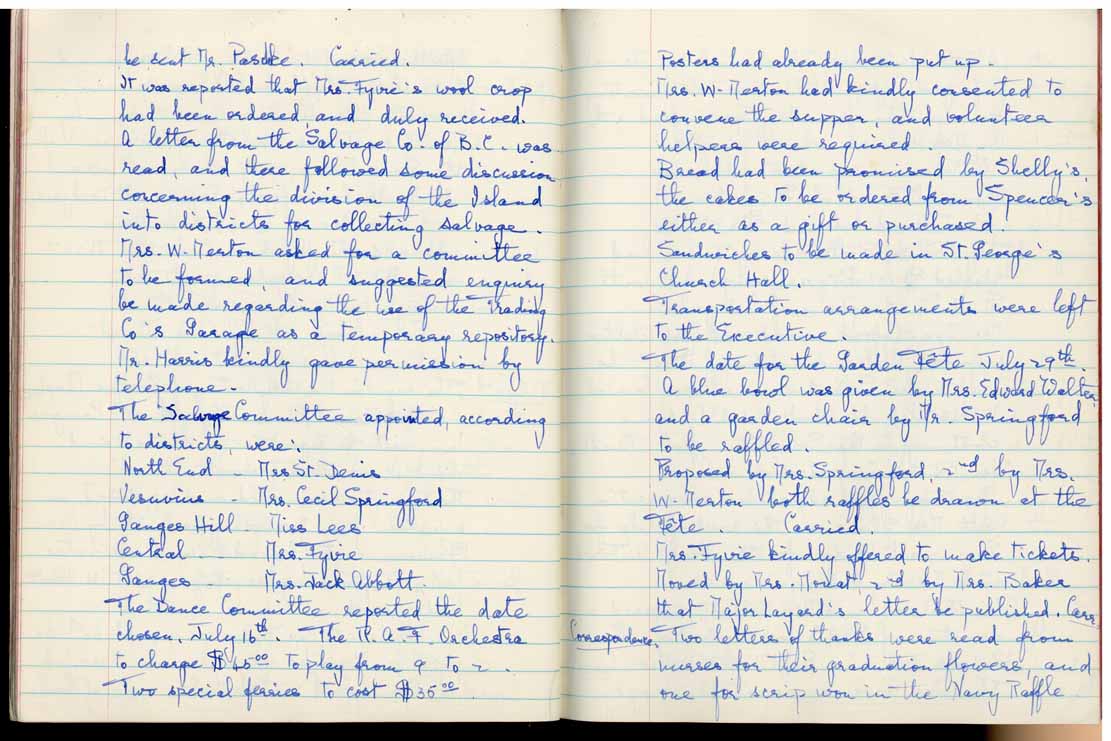 be sent Mr. Paschke. Carried.
It was reported that Mrs. Fyvie's wool crop
had been ordered and duly received.
A letter from the Salvage Co. of B.C. was
read, and there followed some discussion
concerning the division of the Island
into districts for collecting salvage.
Mrs. W. Merton asked for a committee
to be formed, and suggested enquiry
be made regarding the use of the Trading
Co's Garage as a temporary repository.
Mr. Harris kindly gave permission by
telephone.
The Salvage Committee appointed, according
to districts, were:
North End - Mrs St. Denis
Vesuvius - Mrs. Cecil Springford
Ganges Hill - Miss Lees
Central - Mrs. Fyvie
Ganges - Mrs. Jack Abbott.
The Dance Committee reported the date
chosen, July 16th. The R.A.F. Orchestra
to charge $45.00 to play from 9 to 2.
Two special ferries to cost $35.00
Posters had already been put up.
Mrs. W. Merton had kindly consented to
convene the supper, and volunteer
helpers were required.
Bread had been promised by Shelly's,
the cakes to be ordered from Spencer's
either as a gift or purchased.
Sandwiches to be made in St. George's
Church Hall.
Transportation arrangements were left
to the Executive.
The date for the Garden Fête July 29th.
A blue bowl was given by Mrs. Edward Walter
and a garden chair by Mr. Springford
to be raffled.
Proposed by Mrs. Springford, 2nd by Mrs.
W. Merton both raffles be drawn at the
Fête. Carried.
Mrs. Fyvie kindly offered to make tickets.
Moved by Mrs. Mouat, 2nd by Mrs. Baker
that Major Layard's letter be published. Carr
Correspondence. Two letters of thanks were read from
nurses for their graduation flowers, and
one for scrip won in the Navy Raffle